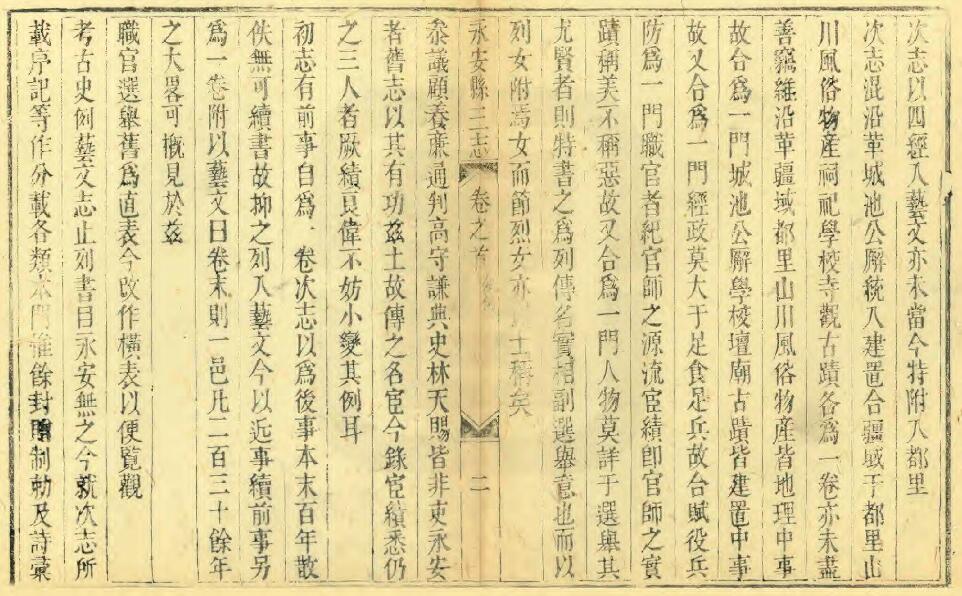 次志以四經入藝文亦未當今特附入都里
次志混沿革城池公廨統入建置合疆域于都里山
川風俗物産祠祀學校寺觀古蹟各爲一卷亦未盡
善竊維沿革疆域都里山川風俗物産皆地理中事
故合爲一門城池公廨學校壇廟古蹟皆建置中事
故又合爲一門經政莫大于足食足兵故合賦役兵
防爲一門職官者紀官師之源流宦績卽官師之實
蹟稱美不稱惡故又合爲一門人物莫詳于選舉其
尤賢者則特書之爲列傳名實相副選舉意也而以
列女附焉女而節烈女亦士稱矣
永安縣三志 卷之首 二
叅議顧養謙通判高守謙典史林天賜皆非吏永安
者舊志以其有功兹土故傳之名宦今錄宦績悉仍
之三人者厥績良偉不妨小變其例耳
初志有前事自爲一卷次志以爲後事本末百年散
佚無可續書故抑之列入藝文今以近事續前事另
爲一卷附以藝文曰卷末則一邑凡二百三十餘年
之大畧可概見於兹
職官選舉舊爲直表今改作橫表以便覽觀
考古史例藝文志止列書目永安無之今就次志所
載序記等作分載各類本門惟餘封贈制勅及詩彙